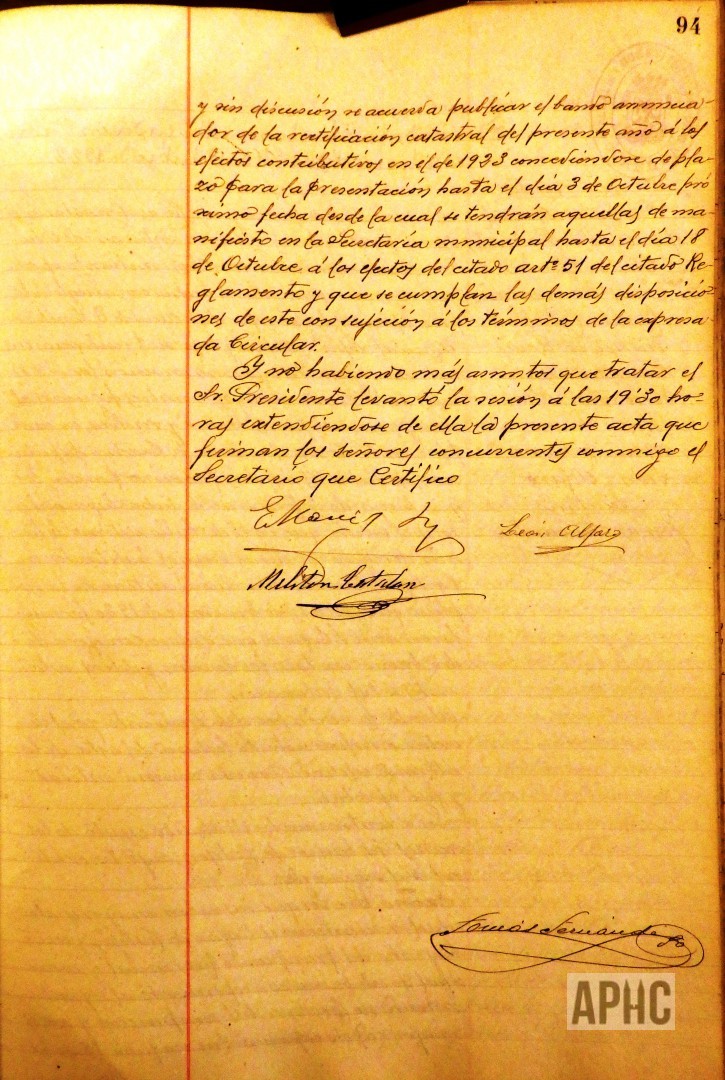 94
y sin discusión se acuerda publicar el bando anuncia-
dor de la rectificación catastral del presente año á los
efectos contributivos en el de 1923 concediendose de pla-
zo para la presentación hasta el dia 3 de Octubre pró
ximo fecha desde la cual se tendrán aquellas de ma-
nifiesto en la Secretaría municipal hasta el día 18
de Octubre á los efectos del citado artº 51 del citado Re-
glamento y que se cumplan las demás disposicio-
nes de este con sujeción á los términos de la expresa-
da Circular.
Y no habiendo más asuntos que tratar el
Sr. Presidente levantó la sesión á las 19'30 ho-
ras extendiéndose de ella la presente acta que
firman los señores concurrentes conmigo el
Secretario que Certifico
León Alfaro
Meliton Catalan
Tomás Fernández
APHC